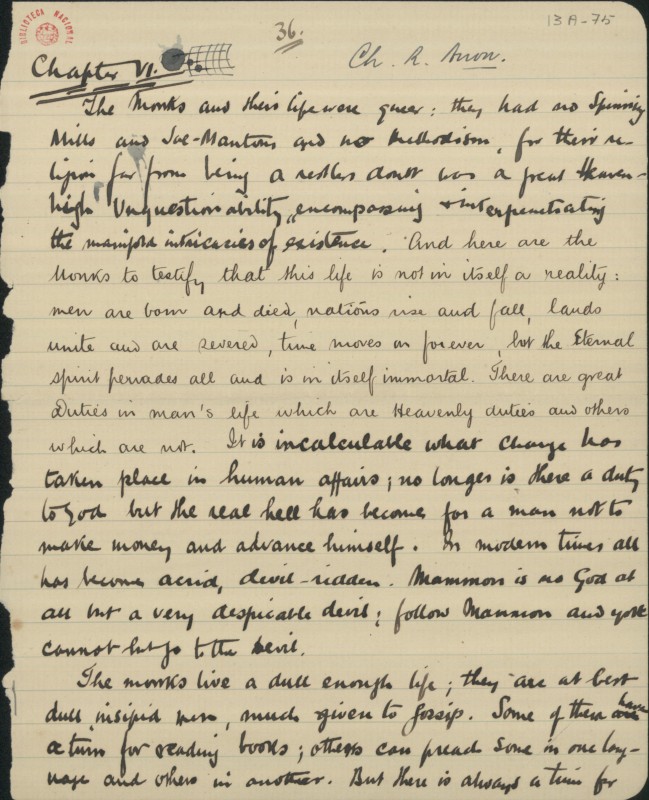 BIBLIOTECA NACIONAL
36.
13 A-75
Chapter VI.
Ch. R. Anon.
The Monks and their life were queer: they had no Spinning
Mills and Joe-Mantons and no Methodism, for their re-
ligion far from being a restless doubt was a great Heaven-
high Unquestionability, encompassing & interpenetrating
the manifold intricacies of existence. And here are the
Monks to testify that this life is not in itself a reality:
men are born and died, nations rise and fall, lands
unite and are severed, time moves on forever, but the Eternal
spirit pervades all and is in itself immortal. There are great
Duties in man's life which are Heavenly duties and others
which are not. It is incalculable what change has
taken place in human affairs; no longer is there a duty
to God but the real hell has become for a man not to
make money and advance himself. In modern times all
has become acrid, devil-ridden. Mammon is no God at
all but a very despicable devil; follow Mammon and you
cannot but go to the Devil.
The monks live a dull enough life; they are at best
dull insipid men, much given to gossip. Some of them have
a turn for reading books; others can preach some in one lang-
uage and others in another. But there is always a time for